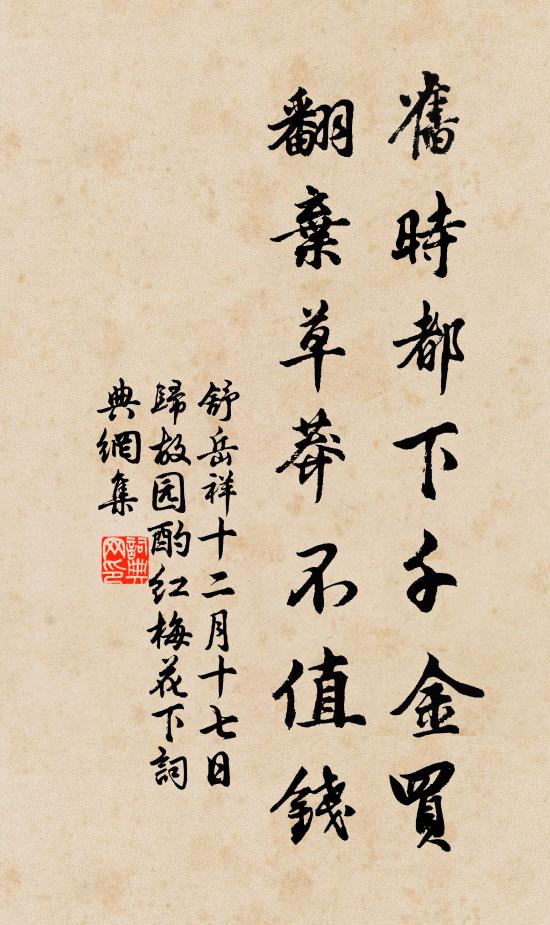 舊時都下千金買
翻棄草莽不值錢
舒岳祥十二月十七日
歸故园酌红梅花下詞
典網集
詞典
网印